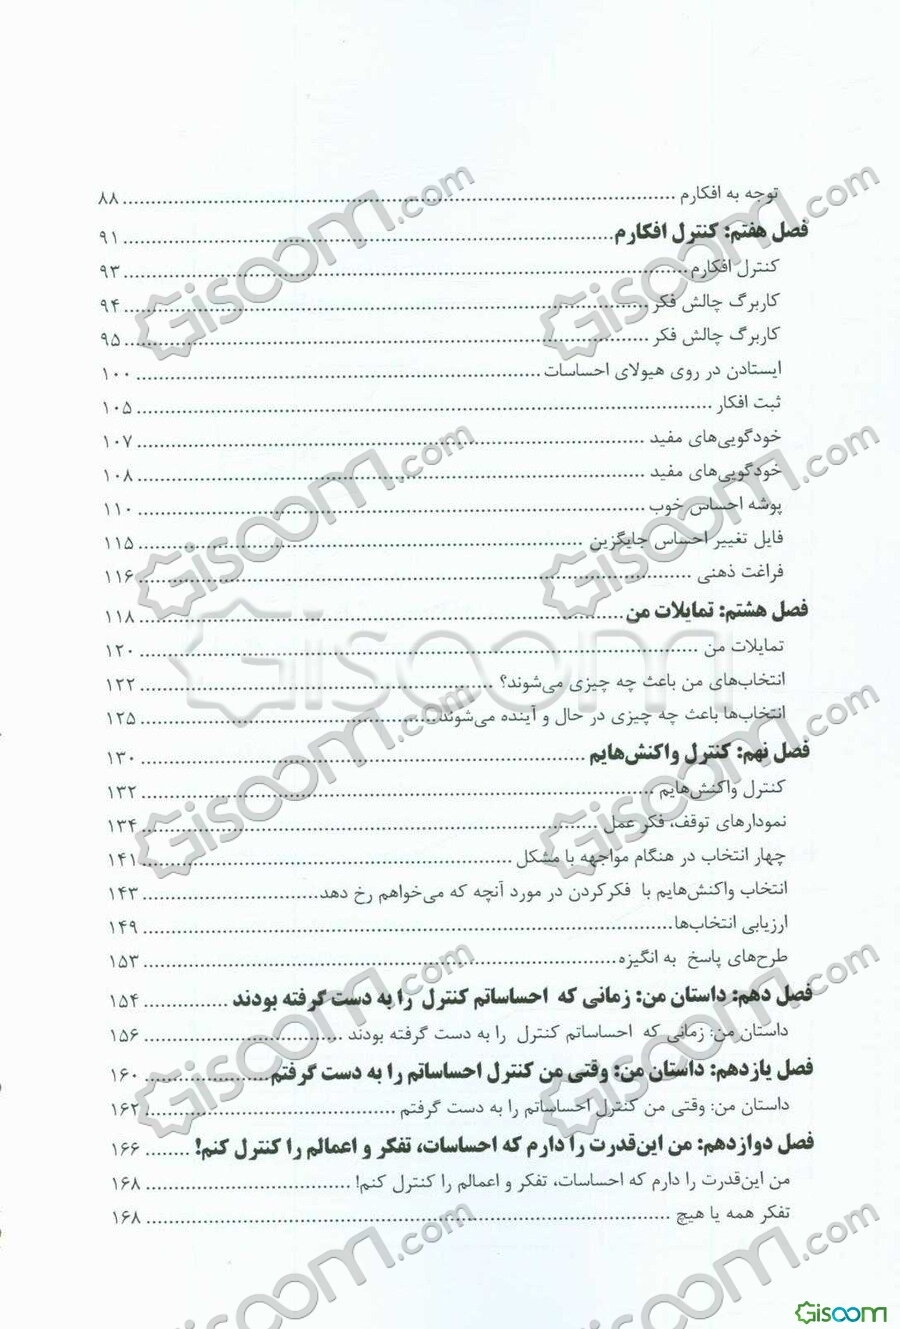 توجه به افکارم ........ ۸۸
فصل هفتم: کنترل افکارم ........ ۹۱
کنترل افکارم ........ ۹۳
کاربرگ چالش فکر ........ ۹۴
کاربرگ چالش فکر ........ ۹۵
ایستادن در روی هیولای احساسات ........ ۱۰۰
ثبت افکار ........ ۱۰۵
خودگویی‌های مفید ........ ۱۰۷
خودگویی‌های مفید ........ ۱۰۸
پوشه احساس خوب ........ ۱۱۰
فایل تغییر احساس جایگزین ........ ۱۱۵
فراغت ذهنی ........ ۱۱۶
فصل هشتم: تمایلات من ........ ۱۱۸
تمایلات من ........ ۱۲۰
انتخاب‌های من باعث چه چیزی می‌شوند؟ ........ ۱۲۲
انتخاب‌ها باعث چه چیزی در حال و آینده می‌شوند ........ ۱۲۵
فصل نهم: کنترل واکنش‌هایم ........ ۱۳۰
کنترل واکنش‌هایم ........ ۱۳۲
نمودارهای توقف، فکر عمل ........ ۱۳۴
چهار انتخاب در هنگام مواجهه با مشکل ........ ۱۴۱
انتخاب واکنش‌هایم با فکرکردن در مورد آنچه که می‌خواهم رخ دهد ........ ۱۴۳
ارزیابی انتخاب‌ها ........ ۱۴۹
طرح‌های پاسخ به انگیزه ........ ۱۵۳
فصل دهم: داستان من: زمانی که احساساتم کنترل را به دست گرفته بودند ........ ۱۵۴
داستان من: زمانی که احساساتم کنترل را به دست گرفته بودند ........ ۱۵۶
فصل یازدهم: داستان من: وقتی من کنترل احساساتم را به دست گرفتم ........ ۱۶۰
داستان من: وقتی من کنترل احساساتم را به دست گرفتم ........ ۱۶۲
فصل دوازدهم: من این‌قدرت را دارم که احساسات، تفکر و اعمالم را کنترل کنم! ........ ۱۶۶
من این‌قدرت را دارم که احساسات، تفکر و اعمالم را کنترل کنم! ........ ۱۶۸
تفکر همه یا هیچ ........ ۱۶۸
Gisoom